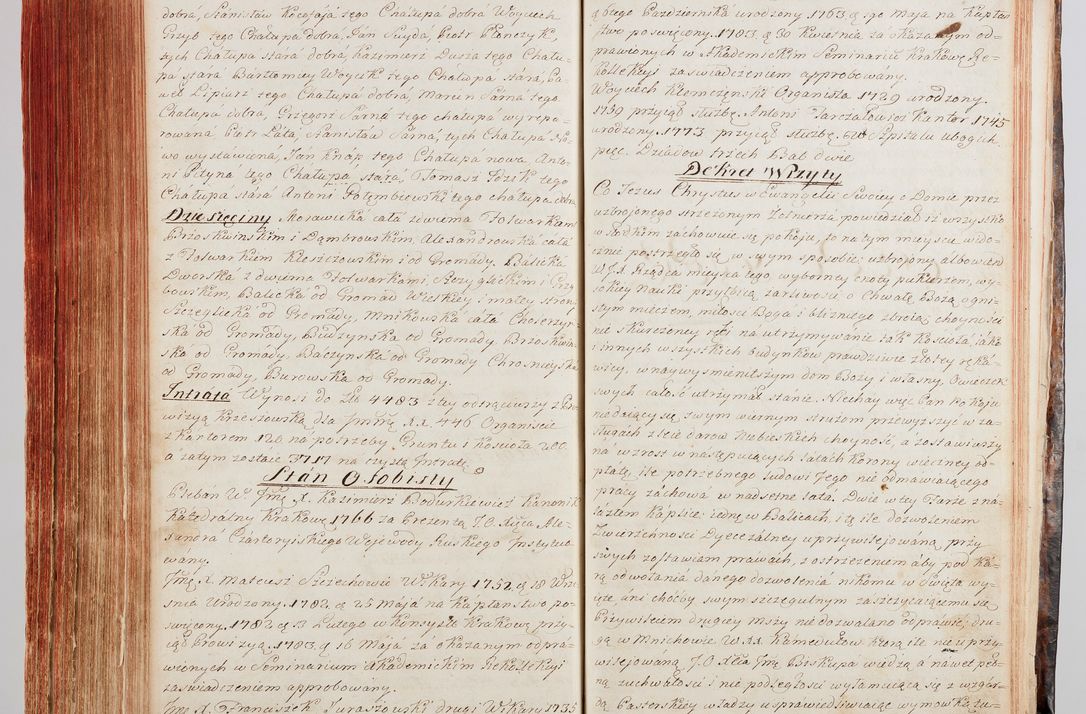 dobrá, Stanisłáw Kocajájá tego Chałupa dobrá Woyciech
Grzyb tego Chałupa dobra, Jan Suyda, Piotr Płanczyk
tych Chałupa stárá dobrá, Kazimierz Dusza tego Chału-
pa stárá Bartłomiey Woycik tego Chałupa stárá, Pa-
weł Lipiarz tego Chałupá dobrá, Marcin Sárná tego
Chałupa dobra, Grzegorz Sárná tego chałupa wyrepe-
rowaná Piotr Lata, Stanisław Sárná, tych Chałupa No-
wo wystawioná, Ján Knáp tego Chałupa nowa, Anto-
ni Pityna tego Chałupa stárá, Tomasz Józik tego
Chałupa stárá Antoni Gołęmbiewski tego chałupa dobra
Dziesięciny Morawická cáłá z dwiema Folwarkami
Brzoskwinskim i Dąmbrowskim, Alexandrowská cáłá
z Folwarkiem Kleszczowskim i od Gromády, Balická
Dworská z dwiema Folwarkámi, Szczyglickim i Grzy-
bowskim, Balická od Gromád Wielkiey i małey strony
Szczeglická od Gromády, Mnikowská cáłá Cholerzyn-
ská od Gromády, Budzynská od Gromády, Brzoskwin-
ská od Gromády, Baczynská od Gromady Chrosnieyská
od Gromady, Burowská od Gromady.
Intráta Wynosi do Zł 4483 z tey odtrąciwszy z Pro-
wizyą Krzeszowską dlá Jmści XX. 446 Organiście
z Kantorem 120 ná potrzeby Gruntu i Kościoła 200
a zátym zostaie 3717 ná czystą Intratę
Stán Osobisty
Pleban W. Jmć X. Kazimierz Bodurkiewicz Kanonik
Kátedrálny Krakow: 1766 za Prezentą J.O. Xięcia Ale-
xandra Czartoryiskiego Wojewody Ruskiego Instytuo-
wany.
Jmć X. Mateusz Szczechowic Wikáry 1752 d 18 Wrze-
śnia Urodzony, 1782 d 25 Májá na Kápłanstwo po-
swięcony, 1782 d 3 Lutego w Konsyst: Krakow: przy-
iął Prowizyą, 1783 d 16 Májá za okazanym odprá-
wionych w Seminarium Akademickim Rekollekcyi
zaswiadczeniem approbowany.
Jmć X. Franciszek Juraszowski drugi Wikáry 1735
d 6tego Pazdziernika urodzony 1763 d 1go Maja na Kapłan
stwo poswięcony, 1783 d 30 Kwietnia za okazanym od-
prawionych w Akademickim Seminarium Krakow: Re-
kollekcyi zaswiadczeniem approbowany.
Woyciech Klemczenski Organista 1729 urodzony.
1759 przyiął służbę, Antoni Tarczałowicz Kantor 1745
urodzony 1773 przyiął służbę, tudz: Szpitalu ubogich
pięć. Dziadow trzech Bab dwie
Dekret Wizyty
Co Jezus Chrystus w Ewangelii Swoiey o Domie przez
uzbrojonego strzeżonym Żołnierza powiedział iż wszystko
w słodkim záchowuie się pokoju, to ná tym mieyscu wido-
cznie postrzegło się, w swym sposobie; uzbroiony albowiem
W.J.X. Rządca mieysca tego wyborney cnoty puklerzem, wy-
sokiey náuki przyłbicą, żárliwości o Chwałę Bożą ogni-
stym mieczem, miłości Boga i bliźniego zbroią; choyności
nie skurczoney ręki na utrzymywánie tak Kościoła, jáko
i innych wszystkich Budynków prawdziwie złotey ręká-
wicy, w naywyśmienitszym dom Boży i własny, Owieczek
swych całość utrzymał stanie. Niechay więc Pan Pokoju
niedaiący się, swym wiernym stróżom przewyższyć w za-
sługach zleie darow Niebieskich choyność, á zostawiwszy
na wzrost w następuiących látach Korony wieczney od-
płátę, ile potrzebnego ludowi Jego nie odmawiaiącego
pracy zachowá w nadsetne lata. Dwie w tey Farze zna-
lazłem Káplice, jednę w Balicach, i tę ile dozwoleniem
Zwierzchności Dyecezálney uprzywilejowáną przy
swych zostáwiam prawách, z ostrzeżeniem áby pod Ká-
rą odwołánia danego dozwolenia nikomu w Swięta wy-
ięte, áni choćby swym szczegulnym zaszczycáiącemu się
Przywilejem drugiey mszy nie dozwalano odprawić, dru-
gą w Mnichowie W.XX. Kamedułow ktorą ile nie uprzy-
wilejowáną J.O. Xcia Jmć Biskupa wiedzą a náwet peł-
ną zuchwałości i nie podległości wyłámuiącą się z wzgár-
dą Pasterskiey władzy usprawiedliwiaiąc wymowká tu-